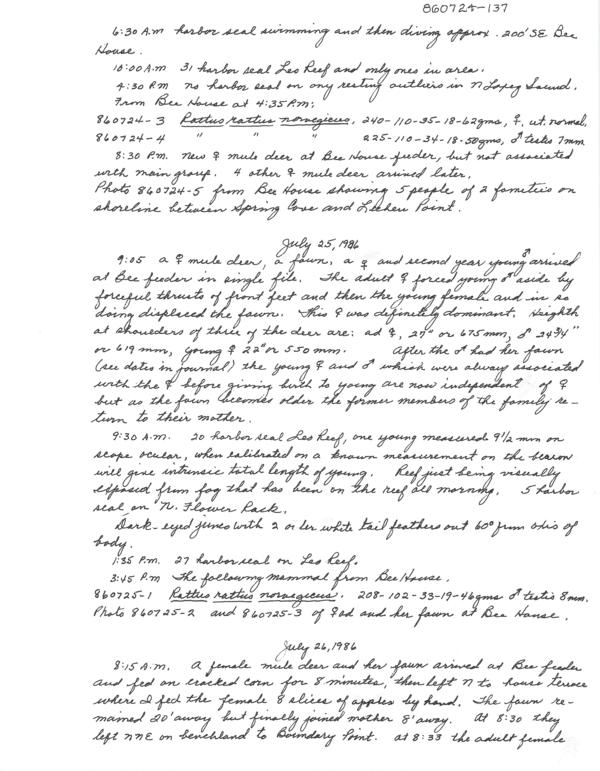 860724-137
6:30 A.M harbor seal swimming and then diving approx. 200' SE Bee
House.
10:00 A.M 31 harbor seal Leo Reef and only ones in area.
4:30 P.M no harbor seal on any resting outliers in N Lopez Sound.
From Bee House at 4:35 P.M:
860724-3 Rattus rattus norvegicus, 240-110-35-18-62gms, ♀, ut. normal.
860724-4 " " " 225-110-34-18-50gms, ♂ testes 7mm
8:30 P.M. new ♀ mule deer at Bee House feeder, but not associated
with main group. 4 other ♀ mule deer arrived later.
Photo 860724-5 from Bee House showing 5 people of 2 families on
shoreline between Spring Cove and Lichen Point.
July 25, 1986
9:05 a ♀ mule deer, a fawn, a ♀ and second year young ♂ arrived
at Bee feeder in single file. The adult ♀ forced young ♂ aside by
forceful thrusts of front feet and then the young female and in so
doing displaced the fawn. This ♀ was definitely dominant. Heighth
at shoulders of three of the deer are: ad ♀, 27" or 675mm, ♂ 24 3/4"
or 619 mm, young ♀ 22" or 550 mm. After the ♂ had her fawn
(see dates in journal) the young ♀ and ♂ which were always associated
with the ♀ before giving birth to young are now independent of ♀
but as the fawn becomes older the former members of the family re-
turn to their mother.
9:30 A.M. 20 harbor seal Leo Reef, one young measured 9 1/2 mm on
scope ocular, when calibrated on a known measurement on the
will give intrinsic total length of young. Reef just being visually
exposed from fog that has been on the reef all morning. 5 harbor
seal on N. Flower Rock.
Dark-eyed junco with 2 outer white tail feathers out 60° from axis of
body.
1:35 P.m. 27 harbor seal on Leo Reef.
3:45 P.m The following mammal from Bee House.
860725-1 Rattus rattus norvegicus. 208-102-33-19-46gms ♂ testis 8mm.
Photo 860725-2 and 860725-3 of ♀ ad and her fawn at Bee House.
July 26, 1986
8:15 A.M. a female mule deer and her fawn arrived at Bee feeder
and fed on cracked corn for 8 minutes, then left N to house terrace
where I fed the female 8 slices of apples by hand. The fawn re-
mained 20' away but finally joined mother 8' away. At 8:30 they
left NNE on benchland to Boundary Point. at 8:33 the adult female